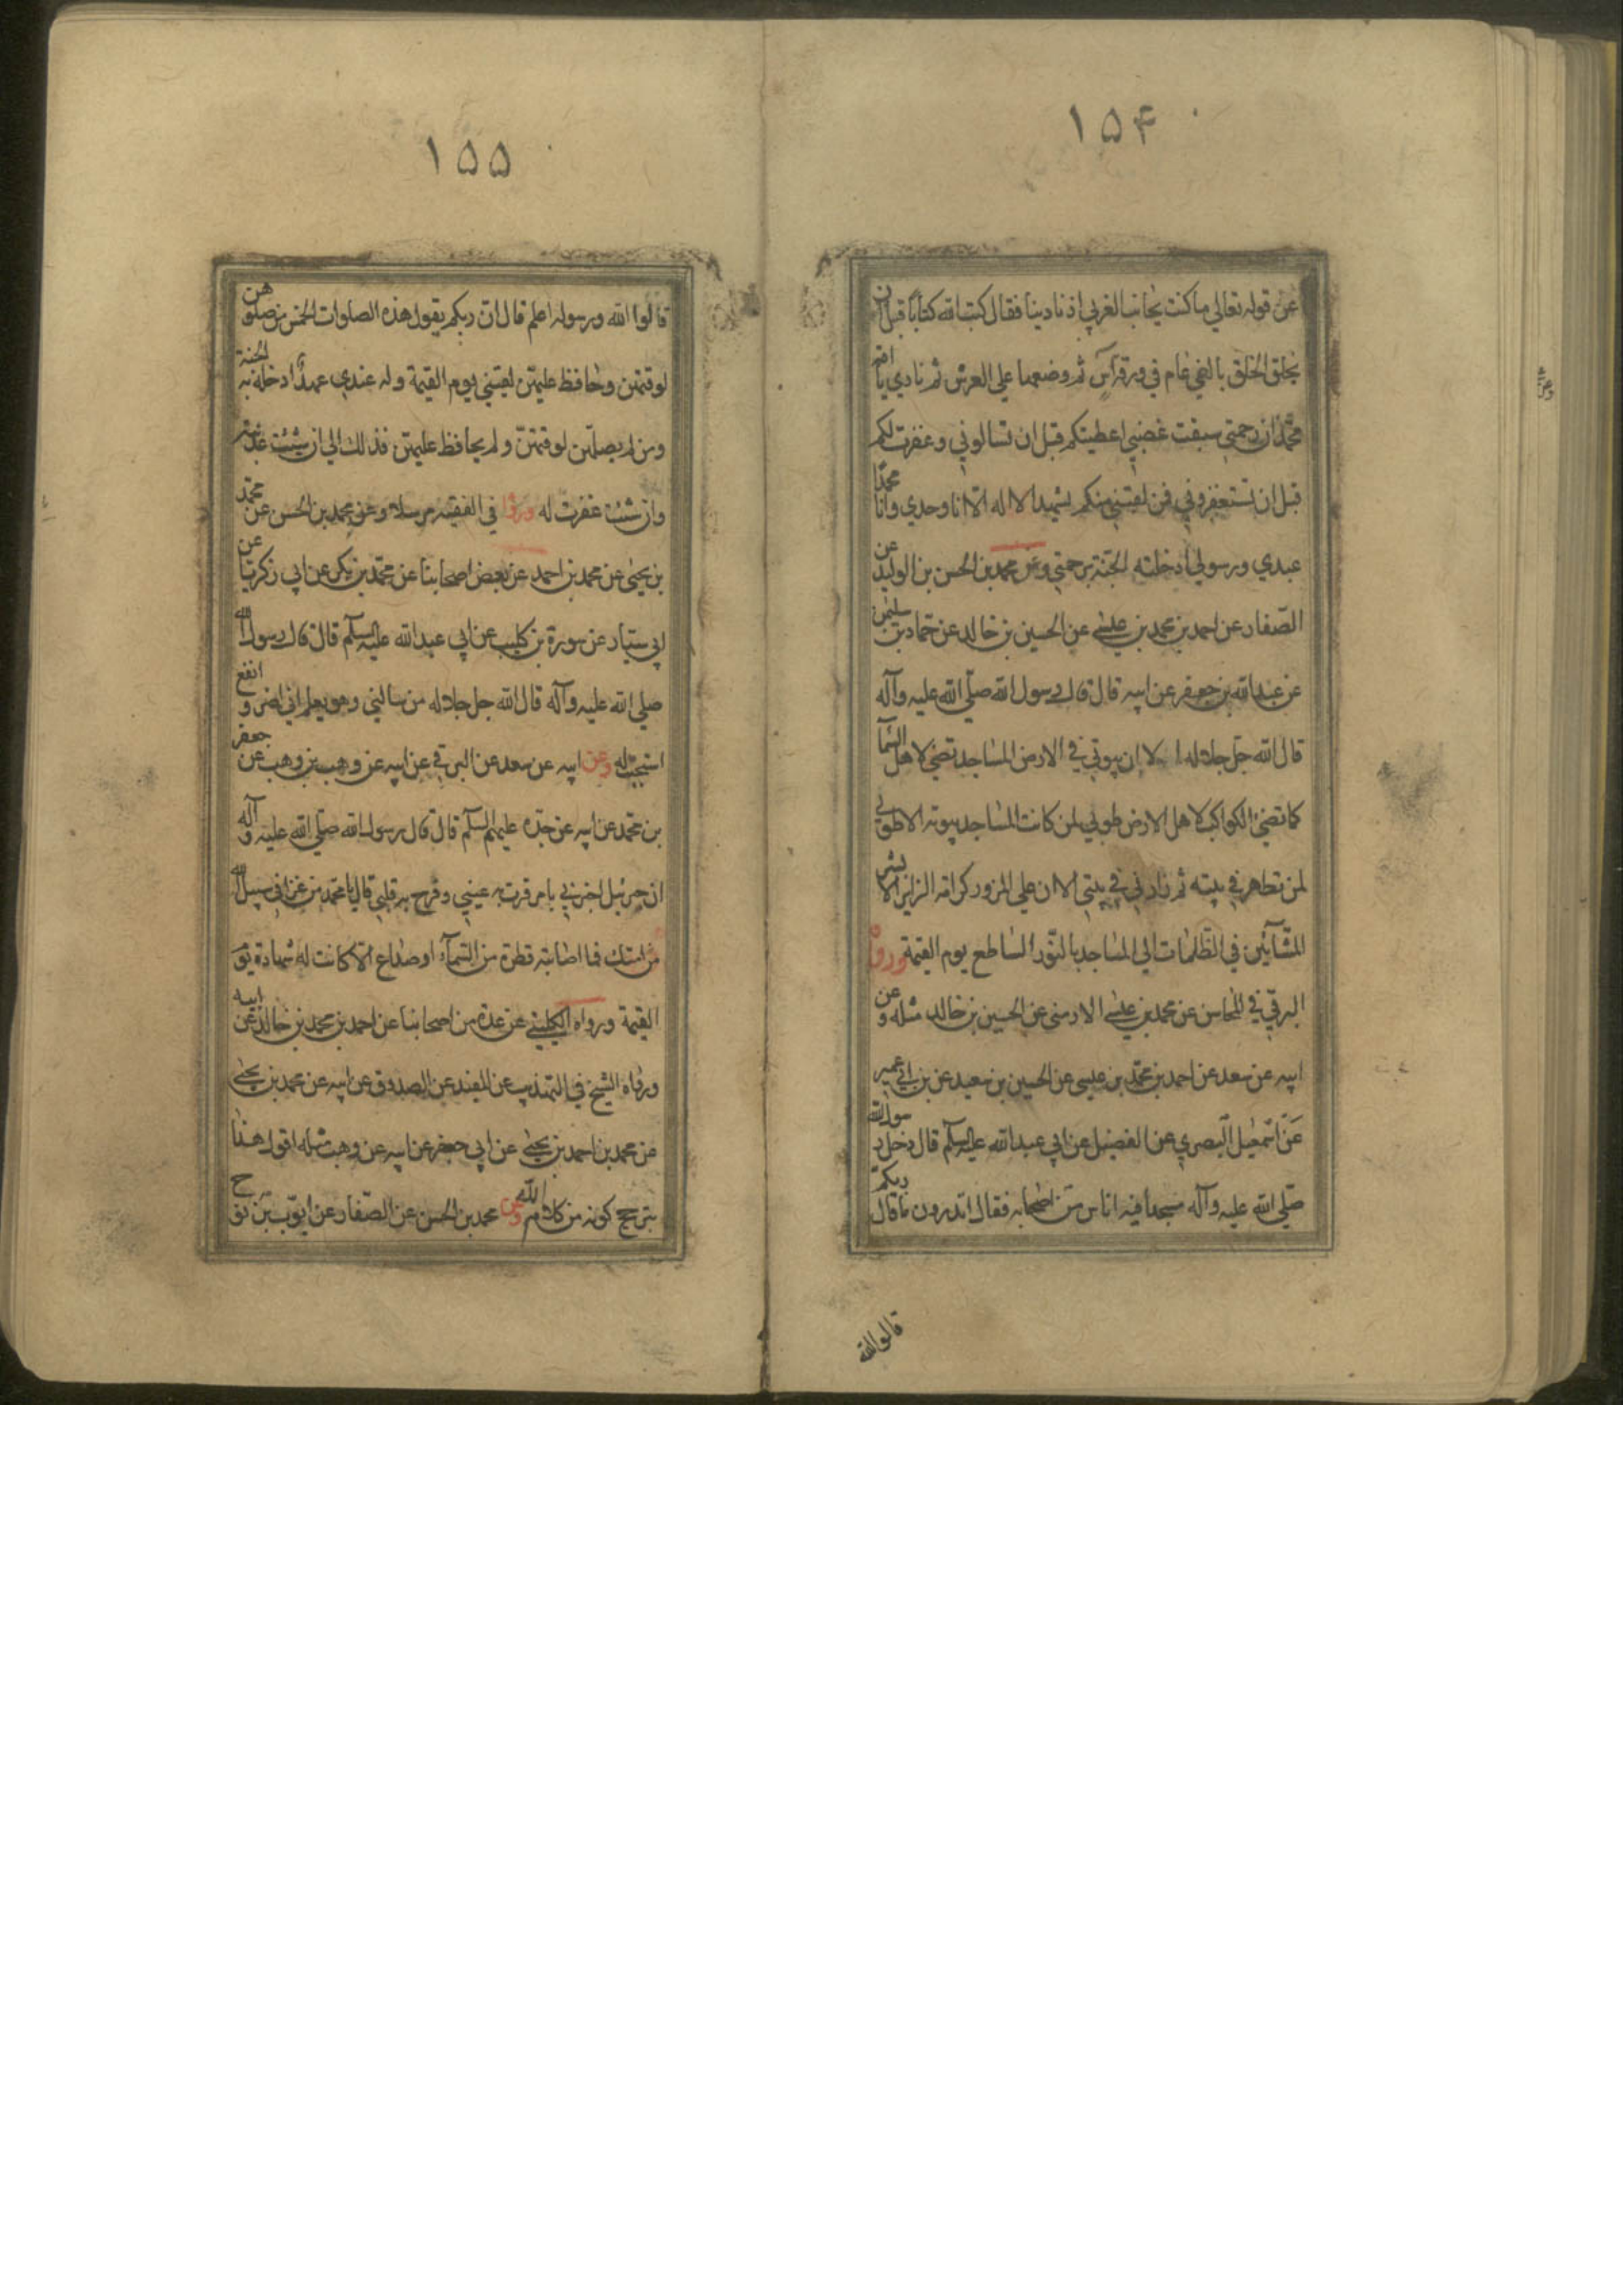 ١٥۴
عن قوله تعالي ما كنت بجانب الغربي اذ نادينا فقال كتب الله كتابا قبل ان
يخلق الخلق بالفي عام في ورقة آس ثم وضعها علي العرش ثم نادي يا امة
محمد ان رحمتي سبقت غضبي اعطيتكم قبل ان تسالوني وغفرت لكم
قبل ان تستغفروني فمن لقيني منكم يشهد الا اله الا انا وحدي وان محمدا
عبدي ورسولي ادخلته الجنة برحمتي وعن محمد بن الحسن بن الوليد عن
الصفار عن احمد بن محمد بن عيسي عن الحسين بن خالد عن حماد بن سليمن
عن عبدالله بن جعفر عن ابيه قال قال رسول الله صلي الله عليه وآله
قال الله جل جلاله الا ان بيوتي في الارض المساجد تضئ لاهل السما
كما تضئ الكواكب لاهل الارض طوبي لمن كانت المساجد بيوته الا طوبي
لمن تطهر في بيته ثم زارني في بيتي الا ان علي المزور كرامة الزاير الا بشر
المشائين في الظلمات الي المساجد بالنور الساطع يوم القيمة ورواه
البرقي في المحاسن عن محمد بن عيسي الارمني عن الحسين بن خالد مثله وعن
ابيه عن سعد عن احمد بن محمد بن عيسي عن الحسين بن سعيد عن بن ابي عمير
عن اسمعيل البصري عن الفضيل عن ابي عبدالله عليه السلم قال دخل رسول الله
صلي الله عليه وآله مسجدا فيه اناس من اصحابه فقال اتدرون ما قال ربكم
قالوا الله
١٥٥
قالوا الله ورسوله اعلم قال ان ربكم يقول هذه الصلوات الخمس من صلوهن
لوقتهن وحافظ عليهن لقيني يوم القيمة وله عندي عهدا ادخله به الجنة
ومن لم يصلهن لوقتهن ولم يحافظ عليهن فذلك الي ان شئت عذبته
وان شئت غفرت له ورواه في الفقيه مرسلا وعن محمد بن الحسن عن محمد
بن يحيي عن محمد بن احمد عن بعض اصحابنا عن محمد بن بكر عن ابي زكريا عن
ابي سيار عن سورة بن كليب عن ابي عبدالله عليه السلم قال قال رسول الله
صلي الله عليه وآله قال الله جل جلاله من سالني وهو يعلم اني اضر وانفع
استجبت له وعن ابيه عن سعد عن البرقي عن ابيه عن وهب بن وهب عن جعفر
بن محمد عن ابيه عن جده عليهم السلم قال قال رسول الله صلي الله عليه وآله
ان جبرئيل اخبرني بامر قرت به عيني وفرح به قلبي قال يا محمد من غزا في سبيل الله
من امتك فما اصابته قطرة من السمآء او صداع الا كانت له شهادة يوم
القيمة ورواه الكليني عن عدة من اصحابنا عن احمد بن محمد بن خالد عن ابيه
ورواه الشيخ في التهذيب عن المفيد عن الصدوق عن ابيه عن محمد بن يحيي
عن محمد بن احمد بن يحيي عن ابي جعفر عن ابيه عن وهب مثله اقول هذا
بترجح كونه من كلام الله وعن محمد بن الحسن عن الصفار عن ايوب بن نوح
وعن